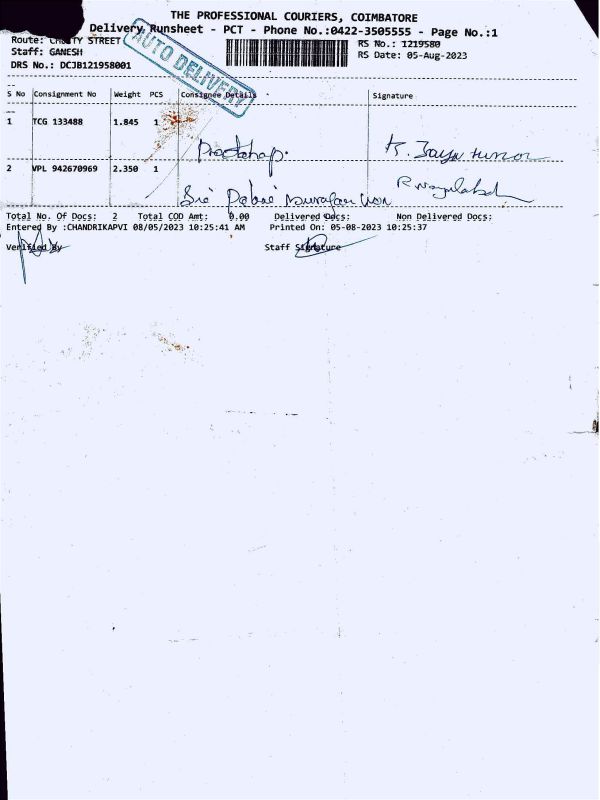 THE PROFESSIONAL COURIERS, COIMBATORE
Delivery Runsheet - PCT - Phone No.:0422-3505555 - Page No.:1
Route: STREET
RS No.: 1219580
Staff: GANESH
RS Date: 05-Aug-2023
DRS No.: DCJB121958001
AUTO DELIVERY
S No Consignment No Weight PCS Consignee Details Signature
1 TCG 133488 1.845 1
Prathap. K. Jaya
2 VPL 942670969 2.350 1
Sri
Total No. Of Docs: 2 Total COD Amt: 0.00 Delivered Docs: Non Delivered Docs:
Entered By :CHANDRIKAPVI 08/05/2023 10:25:41 AM Printed On: 05-08-2023 10:25:37
Verified By Staff Signature